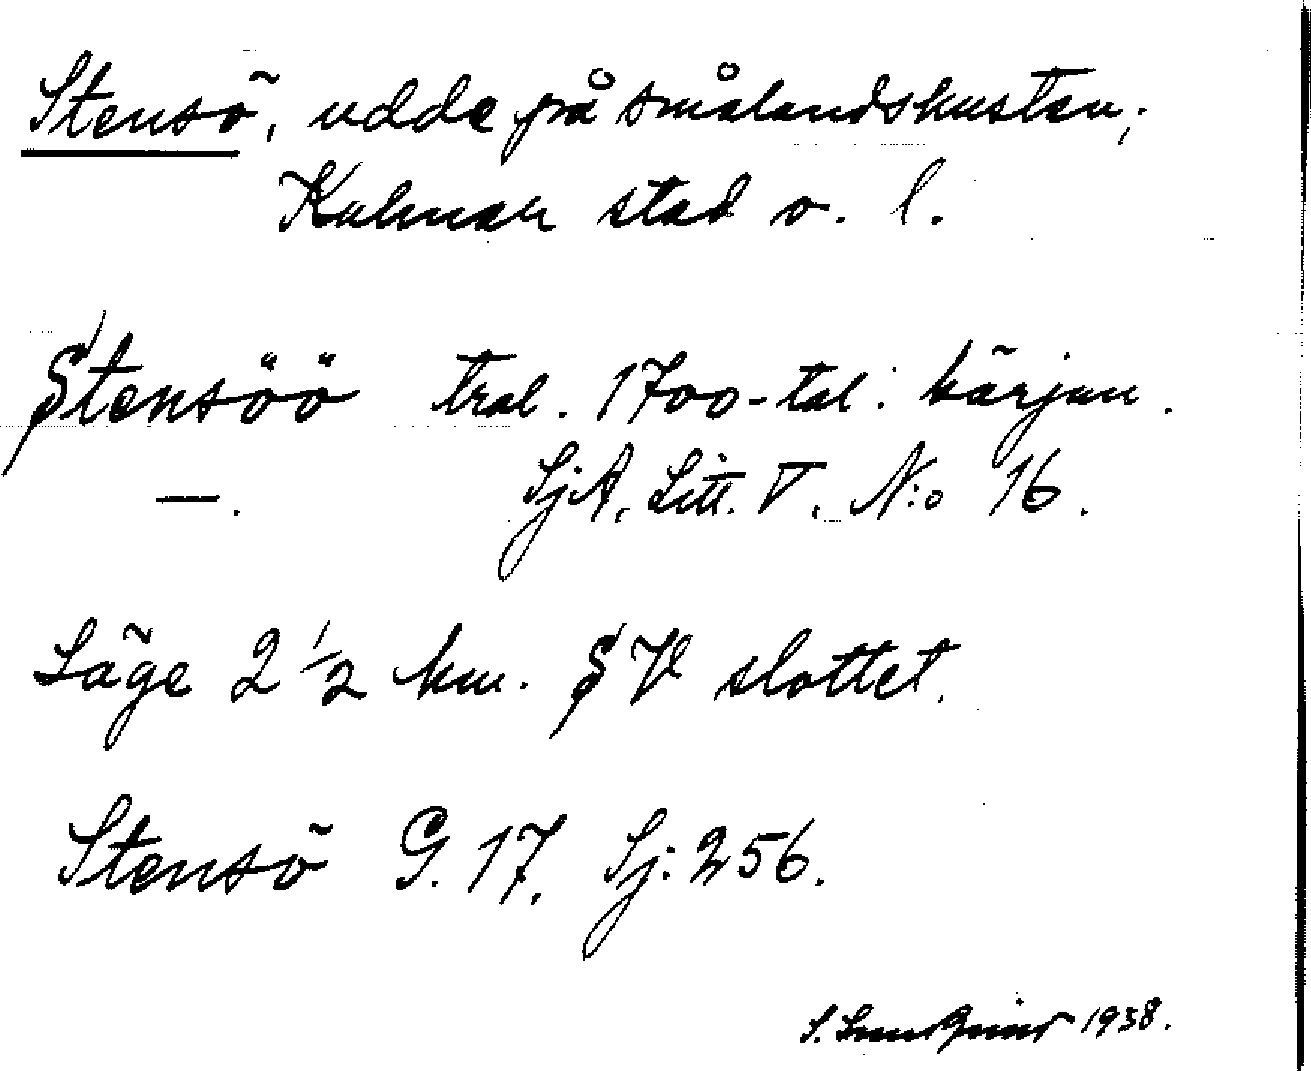 Stensö, udde på smålandskusten;
Kalmar stad o. l.
Stensöö tral. 1700-tal: början.
—. SjA, Litt. V. N:o 16.
Läge 2 1/2 km. SV slottet.
Stensö G. 17. Sj: 256.
S. 1938.